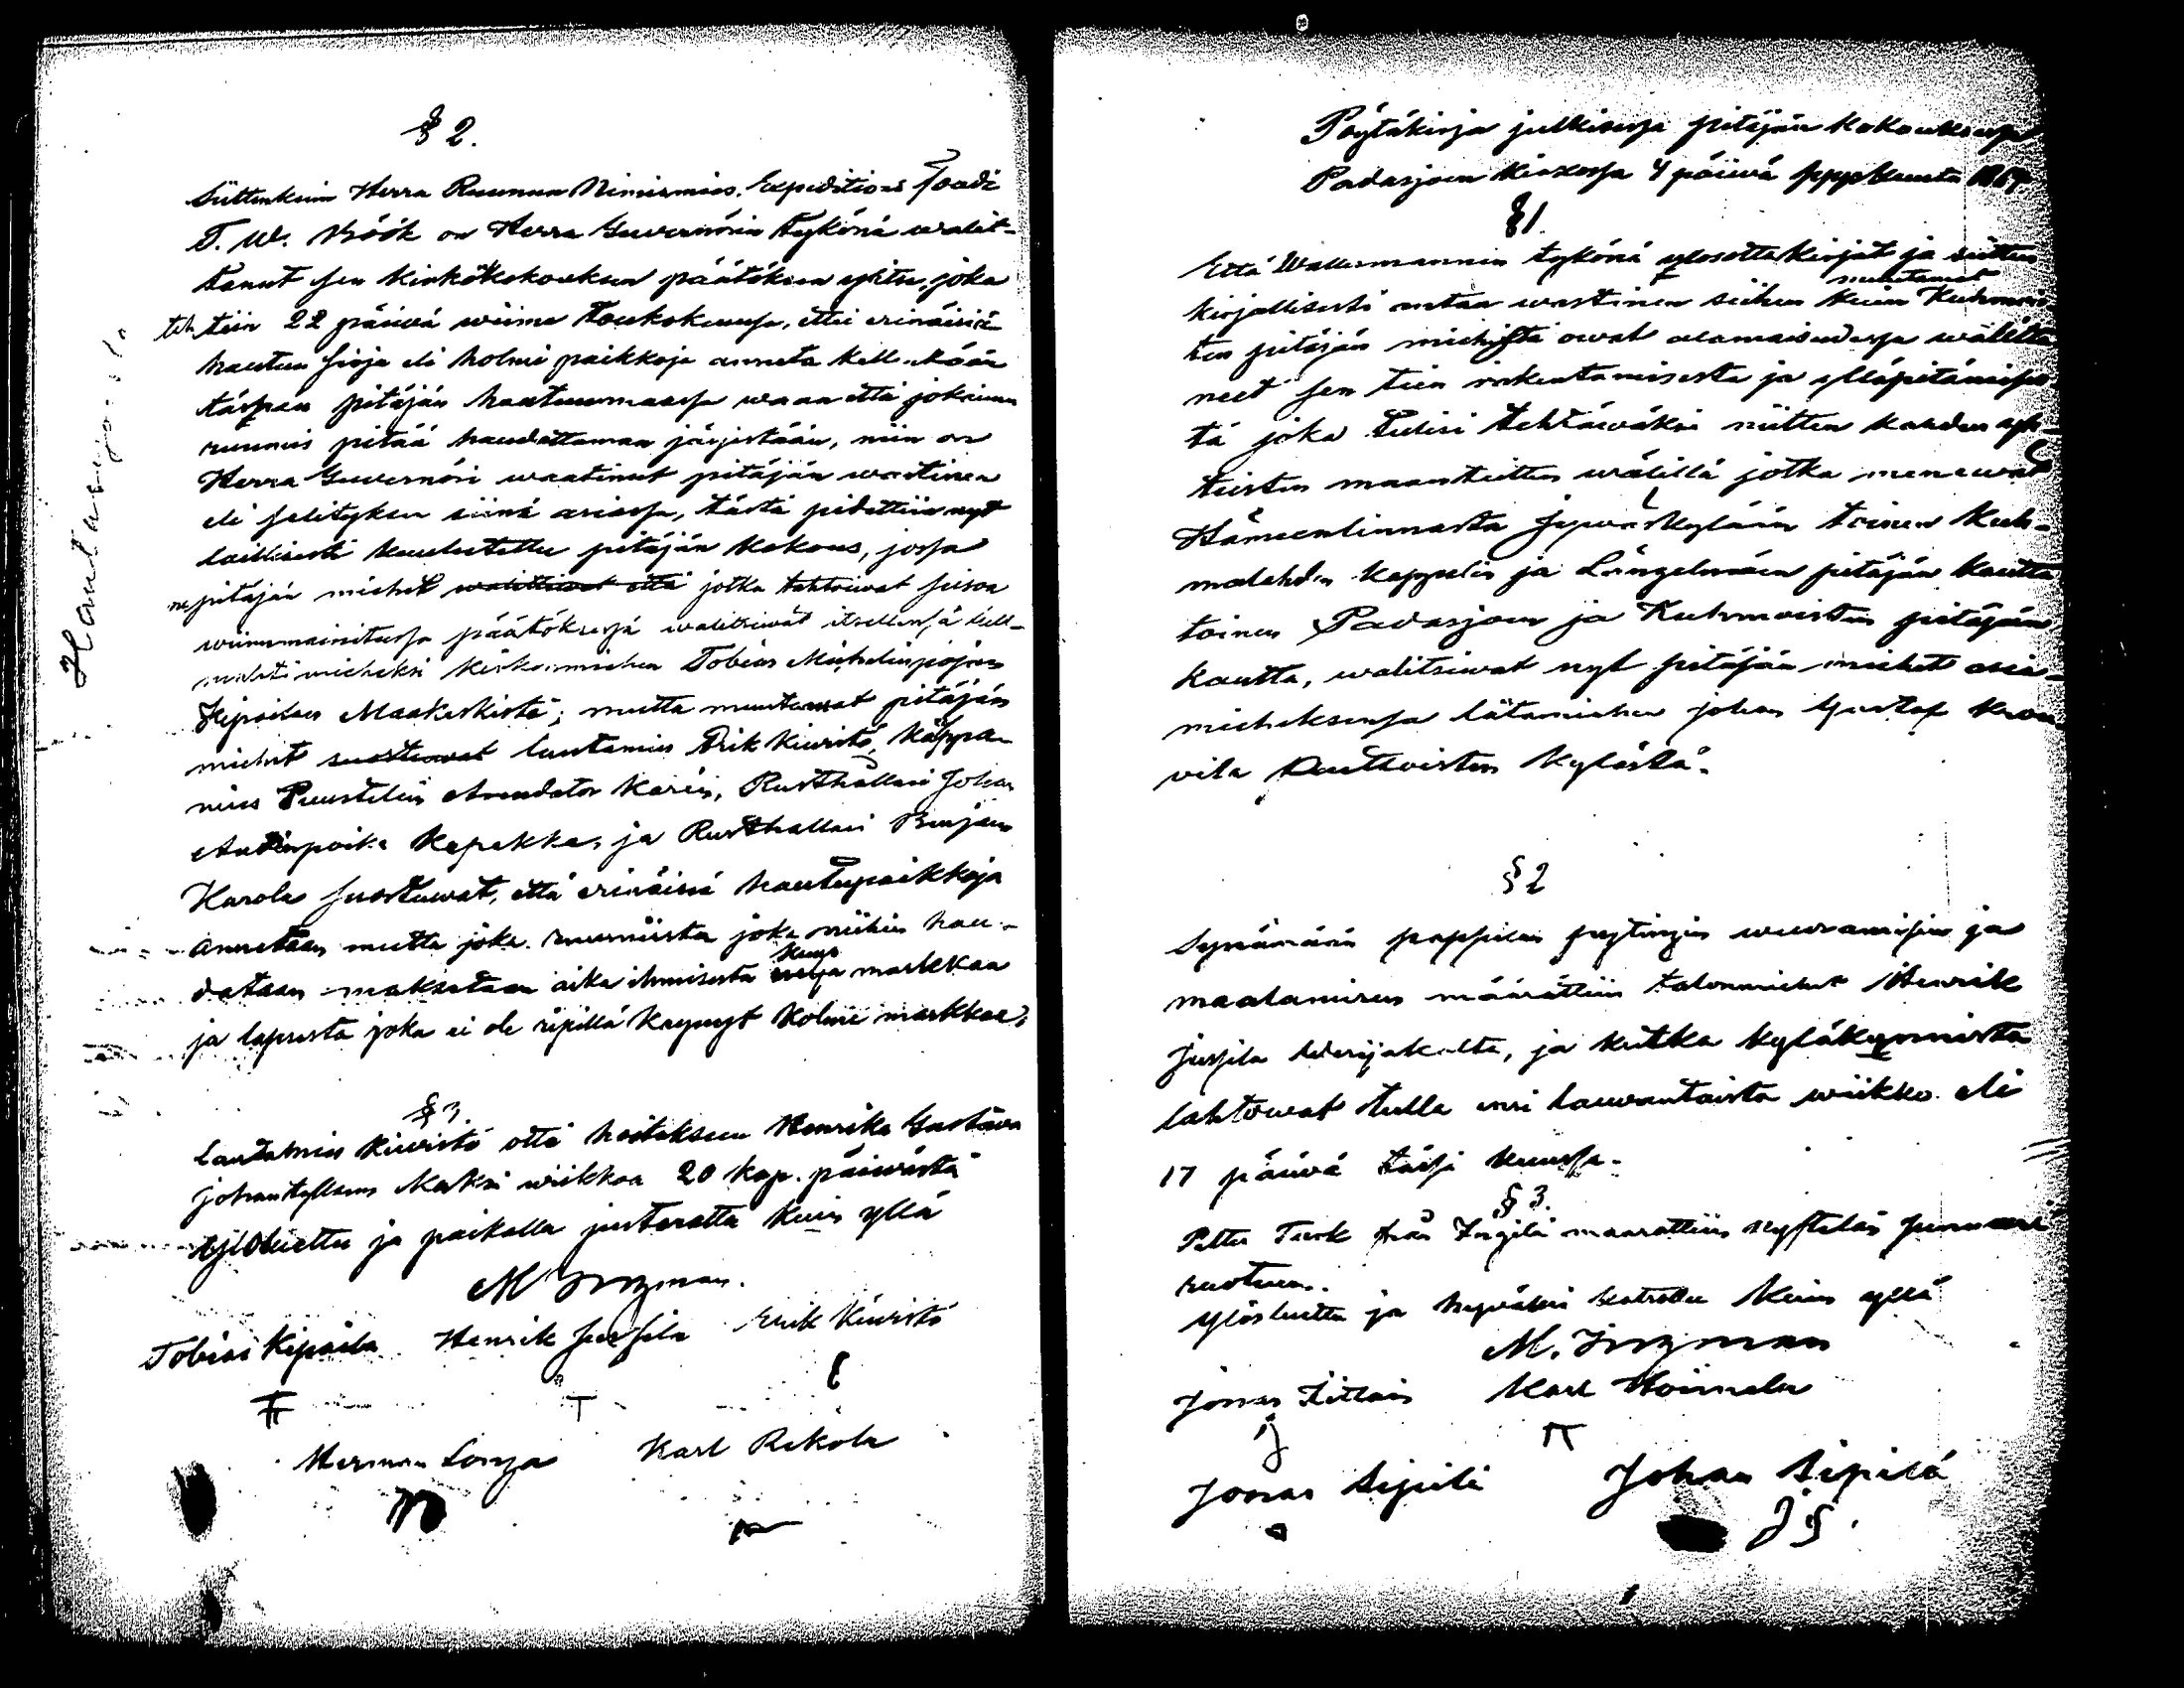 § 2.
Siittenkuin Herra Ruunun Nimismies, Expeditions Foudi
T. W. Böök on Herra Guvernörin tykönä walit-
tanut sen kirkokokouksen päätöksen ylitse, joka
teh tiin 22 päiwä wiime Toukokuussa, ettei erinäisiä
hautaa sioja eli holwi paikkoja anneta kellekään
tässan pitäjän hautausmaassa waan että jokainen
ruumis pitää haudattaman järjestään, niin on
Herra Guvernöri waatinut pitäjän wastinen
eli selityksen siinä asiassa, tästä pidettiin nyt
laillisesti kuulutettu pitäjän kokous, jossa
ne pitäjän miehet walittiwat että jotka tahtoiwat seisoa
wiimemainitussa päätöksessä walitsiwat itsellensä täll-
mieheksi kirkonmiehen Tobias Michelinpojan
Kipailan Maakeskistä; mutta muutamat pitäjän
miehet suostuwat lautamies Erik Kiwistö, Käppa-
nies Puustelin Arendator Karén, Rusthollari Johan
Antinpoika Kepakka, ja Rusthollari Benjam
Harola suostuwat, että erinäisiä hautupaikkoja
annetaan mutta joka ruumiista joka niihin hau-
dataan maksetaan aika ihmisestä kuusi markkaa
ja lapsesta joka ei ole ripillä käynyt kolme markkaa;
§ 3.
Lautamies Kiwistö otti hoitaksen Henrika Gustawa
Johantyttären Maksi wiikkoa 20 kop. päiwästä
Ylösluettu ja paikalla justeerattu kuin yllä
M Ingman.
Tobias Kipaila Henrik Jussila Erik Kiwistö
Herman Lonza Karl Rekola
Hautasijoista
Pöytäkirja julkisessa pitäjän kokouksessa
Padasjoen kirkossa 4 päiwä Syyskuuta 1864
§ 1.
Että Wallesmannin tykönä ylosottakirjat ja siitten
kirjallisesti antaa wastinen siihen kuin muutamat Kuhmois-
ten pitäjän miehistä owat alamaisudessa wälittä
neet sen tien rakentamisesta ja ylläpitämises
tä joka tulisi tehtäwäksi niitten kahden yh-
teisten maanteitten wälillä jotka menewät
Hämeenlinnasta Jywäskylään toinen Kuh-
malahden kappelin ja Längelmäen pitäjän kautta
toinen Padasjoen ja Kuhmoisten pitäjän
kautta, walitsiwat nyt pitäjän miehet asia-
mieheksensä lätamiehen Johan Gustaf Kron
vila Kuuttoisten kylästä.
§ 2
Synämään pappilan pytingin wuoramisen ja
maalamisen määrättiin talonmiehet Henrik
Jussila Werijakalta, ja kutka kyläkunnista
lahtowat tulla ensi lauwantaista wiikko eli
17 päiwä tässä kuussa.
§ 3.
Petter Turk maarattiin
ruotuun.
Ylösluettu ja hyväksi katsottu kuin yllä
M. Ingman
Jonas Karl Hoimela
Jonas Sipilä Johan Sipilä
J S.